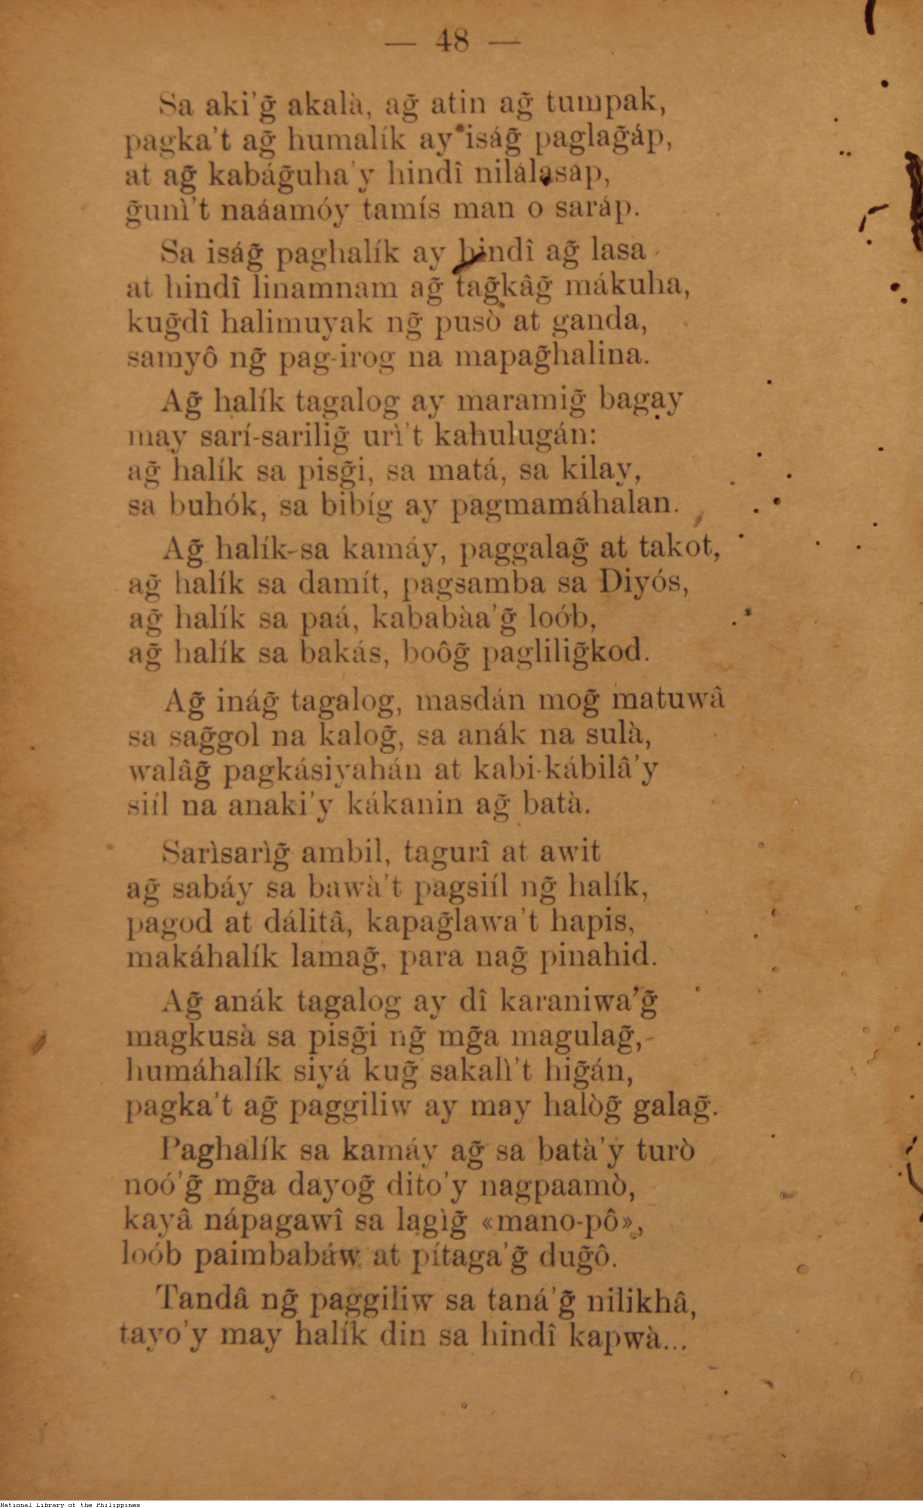 — 48 —
Sa aki'g̃ akalà, ag̃ atin ag̃ tumpak,
pagka't ag̃ humalík ay iság̃ paglag̃áp,
at ag̃ kabág̃uha'y hindî nilálasap,
g̃unì't naáamóy tamís man o saráp.
Sa iság̃ paghalík ay hindî ag̃ lasa
at hindî linamnam ag̃ tag̃kâg̃ mákuha,
kug̃dî halimuyak ng̃ pusò at ganda,
samyô ng̃ pag-irog na mapag̃halina.
Ag̃ halík tagalog ay maramig̃ bagay
may sarí-sarilig̃ urì't kahulugán:
ag̃ halík sa pisg̃i, sa matá, sa kilay,
sa buhók, sa bibíg ay pagmamáhalan.
Ag̃ halík sa kamáy, paggalag̃ at takot,
ag̃ halík sa damít, pagsamba sa Diyós,
ag̃ halík sa paá, kababàa'g̃ loób,
ag̃ halík sa bakás, boôg̃ paglilig̃kod.
Ag̃ inág̃ tagalog, masdán mog̃ matuwâ
sa sag̃gol na kalog̃, sa anák na sulà,
walâg̃ pagkásiyahán at kabi-kábilâ'y
siíl na anaki'y kákanin ag̃ batà.
Sarìsarìg̃ ambil, tagurî at awit
ag̃ sabáy sa bawà't pagsiíl ng̃ halík,
pagod at dálitâ, kapag̃lawa't hapis,
makáhalík lamag̃, para nag̃ pinahid.
Ag̃ anák tagalog ay dî karaniwa'g̃
magkusà sa pisg̃i ng̃ mg̃a magulag̃,
humáhalík siyá kug̃ sakalì't hig̃án,
pagka't ag̃ paggiliw ay may halòg̃ galag̃.
Paghalík sa kamáy ag̃ sa batà'y turò
noó'g̃ mg̃a dayog̃ dito'y nagpaamò,
kayâ nápagawî sa lagìg̃ «mano-pô»,
loób paimbabáw at pítaga'g̃ dug̃ô.
Tandâ ng̃ paggiliw sa taná'g̃ nilikhâ,
tayo'y may halík din sa hindî kapwà...
National Library of the Philippines